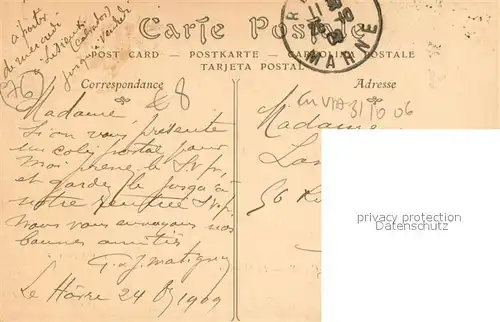 a partir
de mercredi
Carte Postale
POST CARD — POSTKARTE — CARTOLINA POSTALE
TARJETA POSTAL
MARNE
76
Correspondance
Adresse
€8
31/10 06
Madame
Si on vous présente
un colis postal pour
Moi prenez le S.v.p.
et gardez le jusqu'à
notre rentrée S.v.p.
Nous vous envoyons nos
bonnes amitiés
Matigny
Le Hâvre 24 1909
Madame
56
privacy protection
Datenschutz